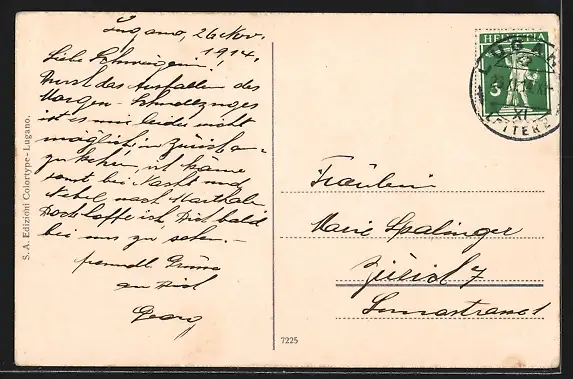 Lugano, 26 Nov.
1914.
Liebe Schwägerin!
Durch das Ausfallen des
Morgen-Schnellzuges
ist es mir leider nicht
möglich in Zürich an-
zukehren, ich käme
sonst bei Nacht und
Nebel nach
Doch hoffe ich, Dich bald
bei uns zu sehen. -
freundl. Grüsse
an Dich
Georg
S. A. Edizioni Colortype - Lugano.
HELVETIA
5
LUGANO
XI
LETTERE
Fräulein
Marie Spalinger
Zürich 7
7225